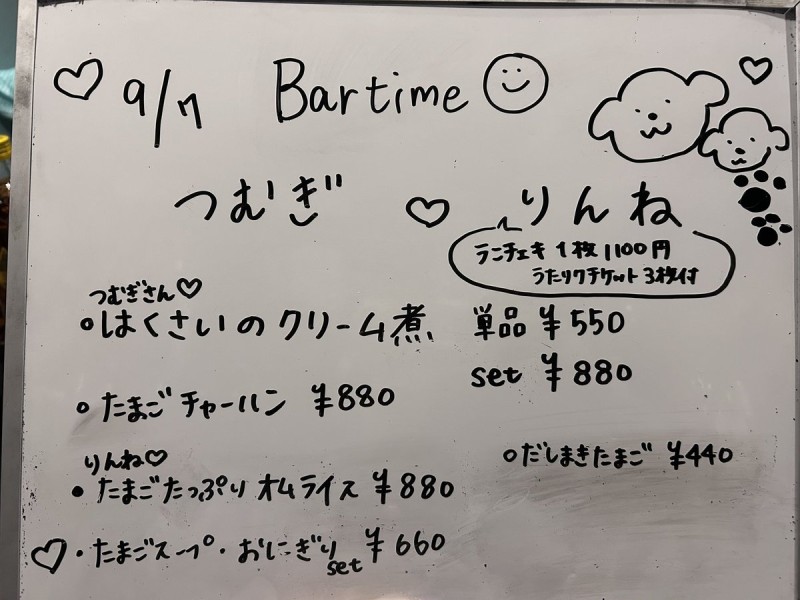 9/7 Bartime
つむぎ ♡ りんね
ラニチェキ 1枚 1100円
うたリクチケット3枚付
つむぎさん♡
はくさいのクリーム煮 単品 ¥550
set ¥880
たまごチャーハン ¥880
だしまきたまご ¥440
りんね♡
・たまごたっぷり オムライス ¥880
♡・たまごスープ・おにぎりset ¥660